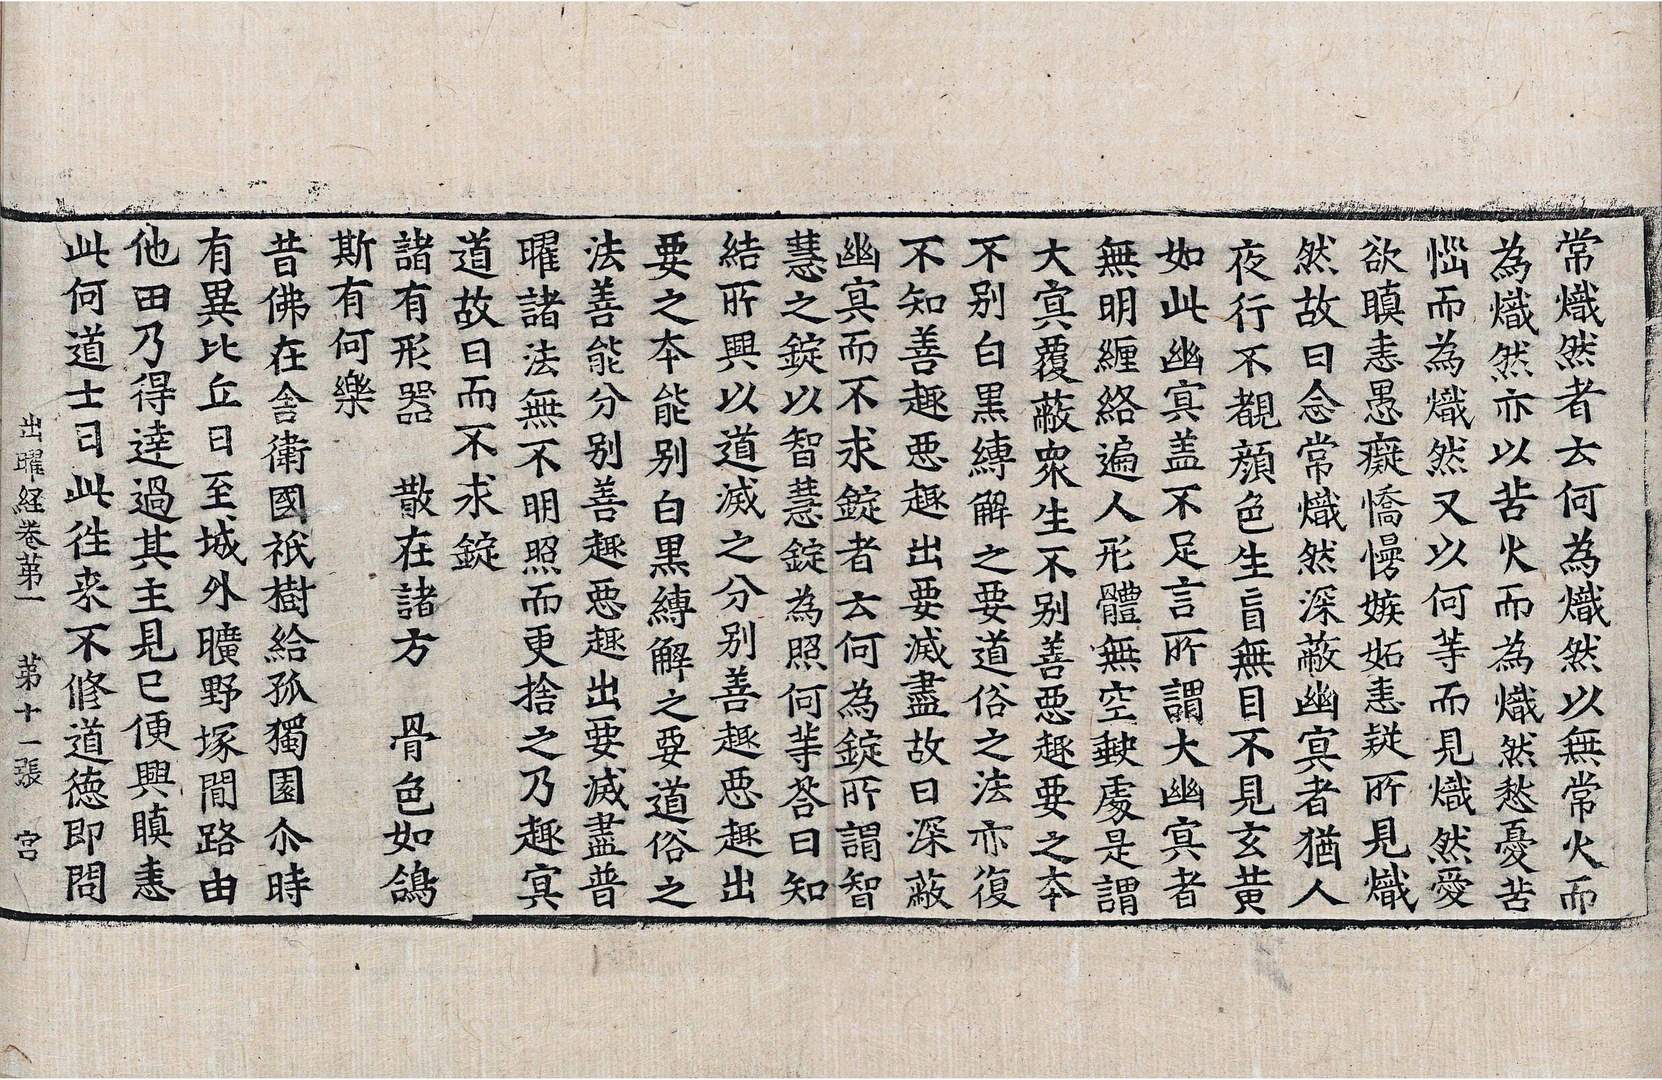 常熾然者云何為熾然以無常火而
為熾然亦以苦火而為熾然愁憂苦
惱而為熾然又以何等而見熾然愛
欲瞋恚愚癡憍慢嫉妬恚疑所見熾
然故曰念常熾然深蔽幽冥者猶人
夜行不覩顏色生盲無目不見玄黃
如此幽冥盖不足言所謂大幽冥者
無明纏絡遍人形體無空缺處是謂
大冥覆蔽衆生不別善惡趣要之本
不別白黒縛解之要道俗之法亦復
不知善趣惡趣出要滅盡故曰深蔽
幽冥而不求錠者云何為錠所謂智
慧之錠以智慧錠為照何等荅曰知
結所興以道滅之分別善趣惡趣出
要之本能別白黒縛解之要道俗之
法善能分別善趣惡趣出要滅盡普
曜諸法無不明照而更捨之乃趣冥
道故曰而不求錠
諸有形器　散在諸方　骨色如鴿
斯有何樂
昔佛在舍衛國祇樹給孤獨園尒時
有異比丘日至城外曠野塚間路由
他田乃得達過其主見已便興瞋恚
此何道士日此往来不修道德即問
出曜経卷苐一　苐十一張　宮